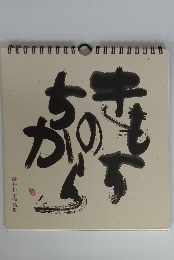 きもち
の
ちから